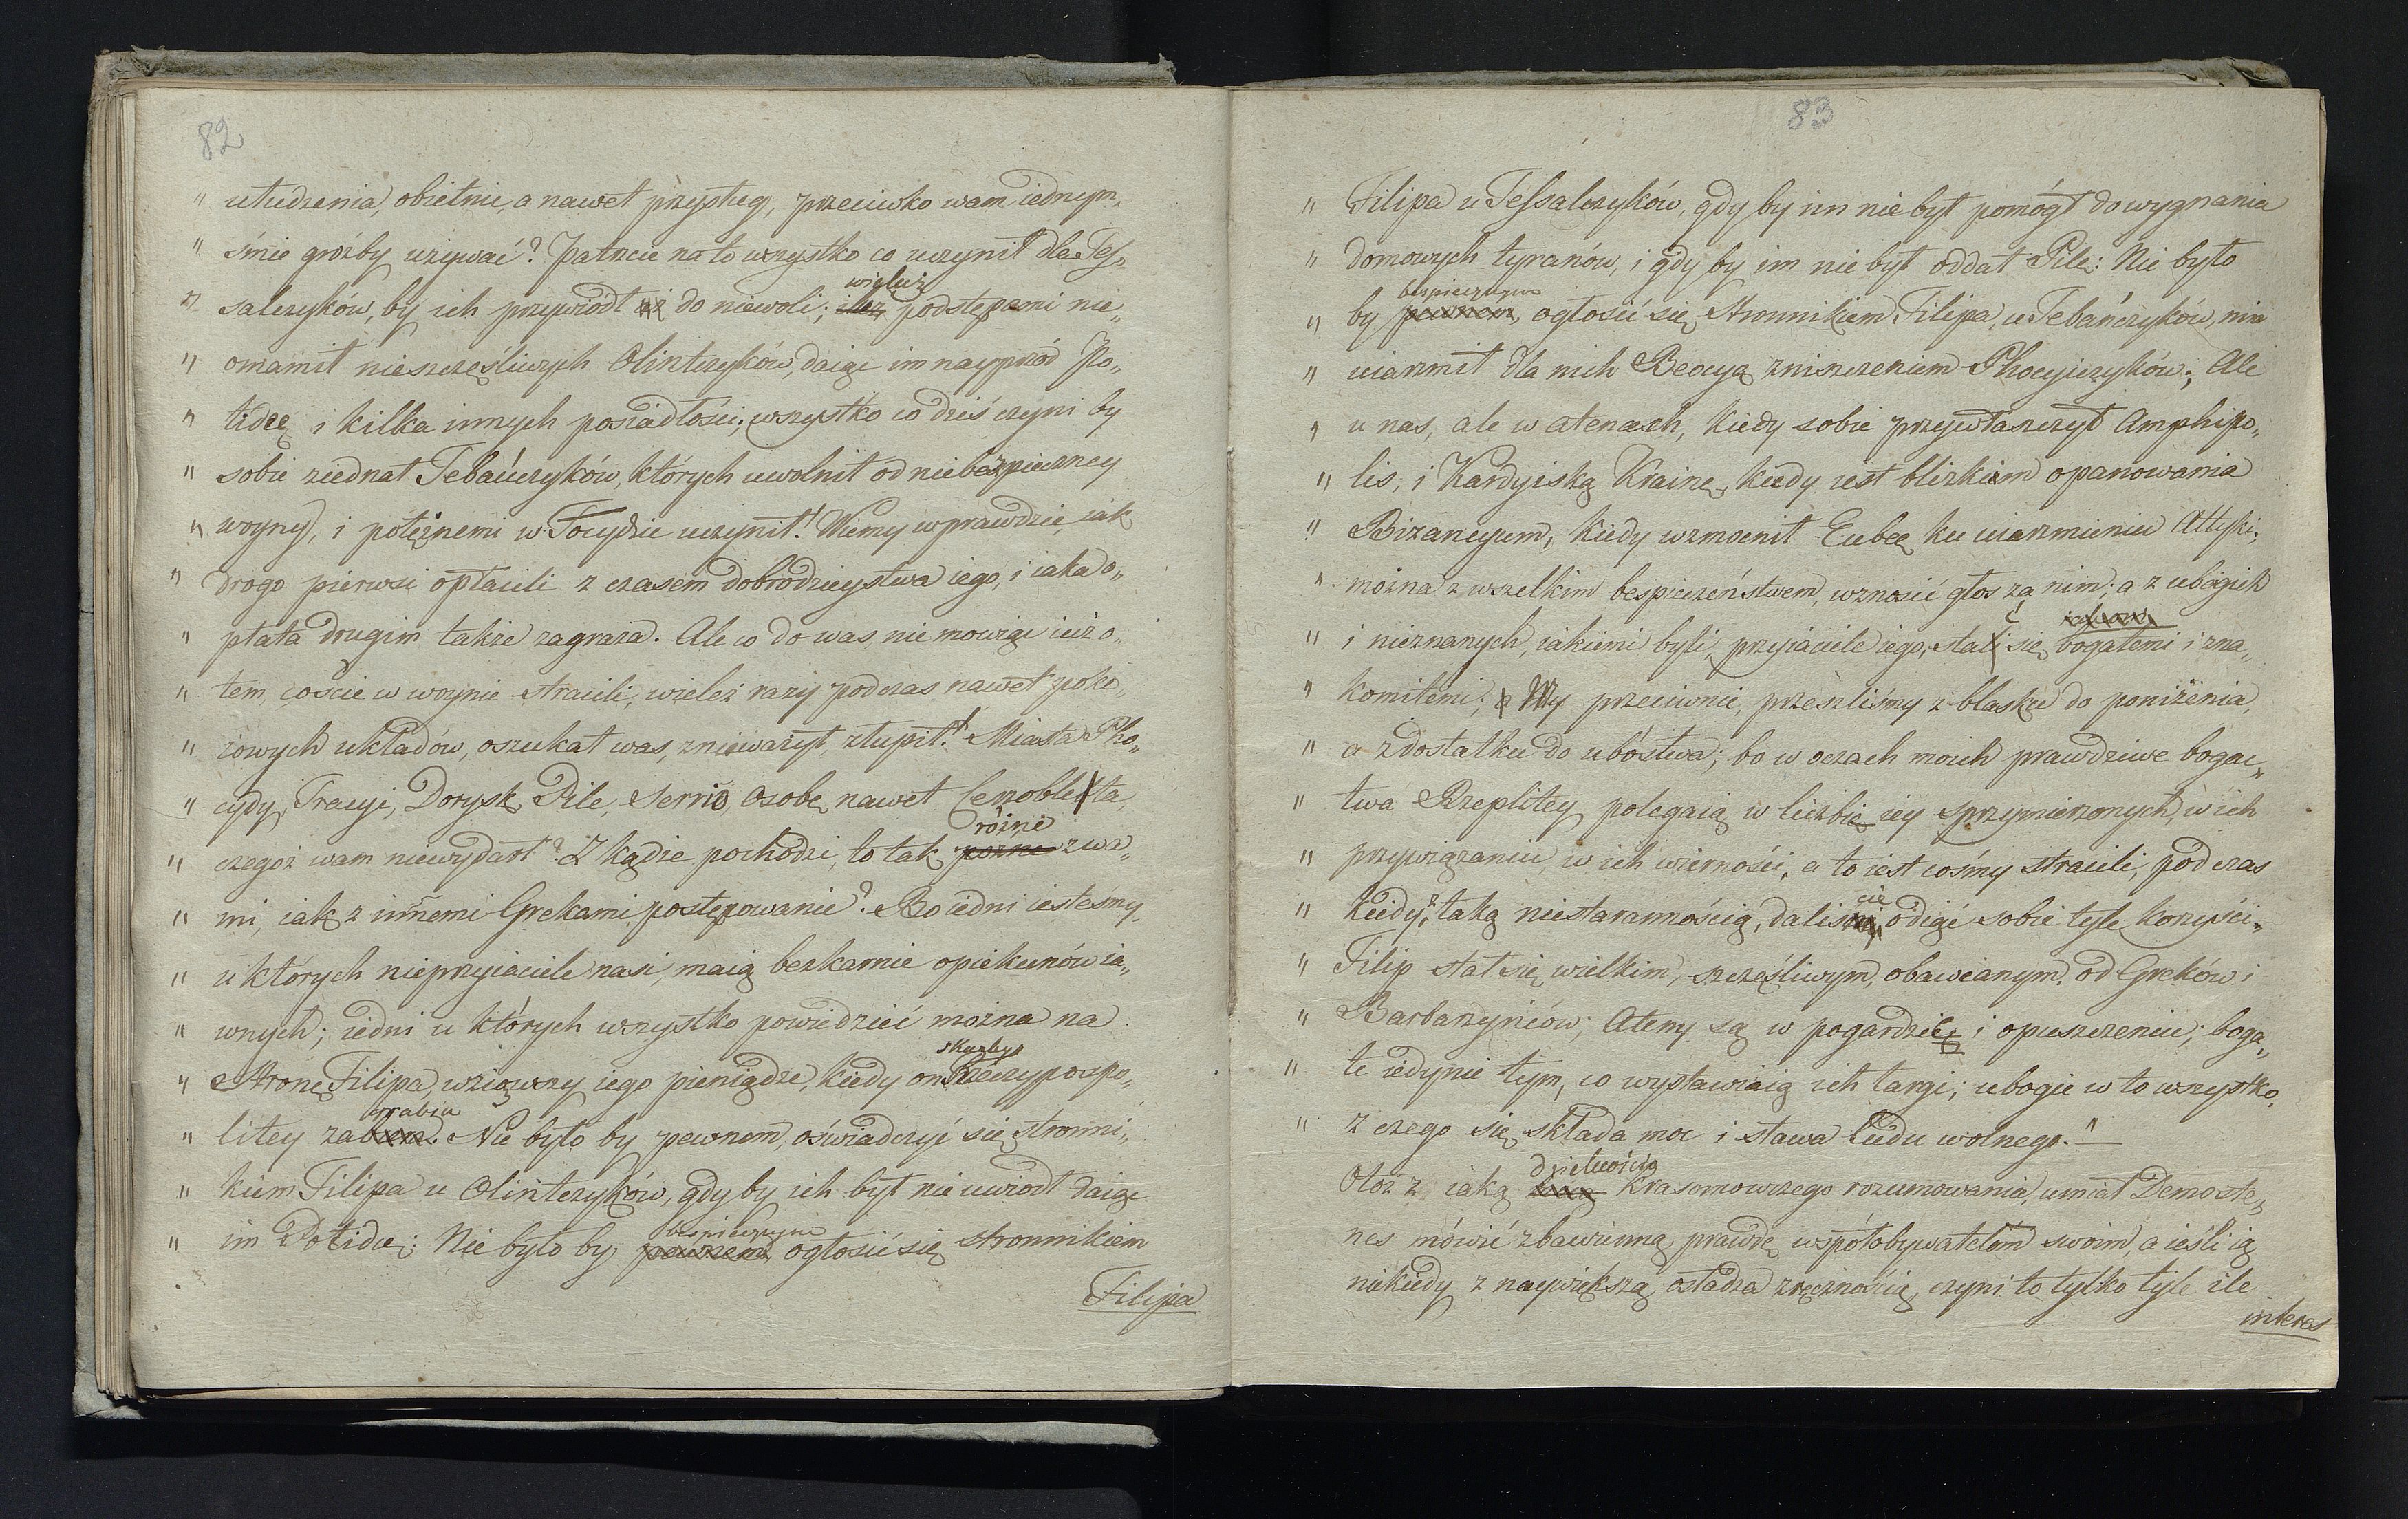 82
„ ułudzenia, obietnic, a nawet przysług, przeciwko wam iednym,
„ śmie groźby używać? Patrzcie na to wszystko co uczynił dla Tes„
„ salczyków, by ich przywiódł aż do niewoli; ileż podstępami nie„
wieluż
„ omamił nieszczęśliwych Olintczyków, daiąc im nayprzód Po„
„ tideę i kilka innych posiadłości; wszystko co dziś czyni by
„ sobie ziednał Tebańczyków, których uwolnił od niebezpieczney
„ woyny, i potężnemi w Focydzie uczynił! Wiemy wprawdzie, iak
„ drogo pierwsi opłacili z czasem dobrodzieystwa iego, i iaka o„
„ płata drugim także zagraża. Ale co do was, nie mowiąc iuż o„
„ tem, coście w woynie stracili, wieleż razy podczas nawet poko„
„ iowych układów, oszukał was, znieważył, złupił! Miasta Pho„
„ cydy, Tracyi, Dorysk, Pile, Serrio, Osobę nawet Cerzoblekta,
„ czegoż wam niewydarł? Z kądże pochodzi, to tak rożne z wa„
różne
„ mi, iak z innemi Grekami postępowanie? Bo iedni iesteśmy,
„ u których nieprzyiaciele nasi, maią bezkarnie opiekunów ia„
„ wnych; iedni u których wszystko powiedzieć można na
„ stronę Filipa, wziąwszy iego pieniądze, kiedy on Rzeczypospo„
skarby
„ litey zabiera. Nie było by pewnem, oświadczyć się stronni„
grabia
„ kiem Filipa u Olintczyków, gdyby ich był nie uwiódł daiąc
„ im Potideę: Nie było by pewnem ogłosić się stronnikiem
bespiecznie
Filipa
83
„ Filipa u Tessalczyków, gdy by im nie był pomógł do wygnania
„ domowych tyranów, i gdy by im nie był oddał Pile: Nie było
bespiecznym
„ by pewnem, ogłosić się Stronnikiem Filipa, u Tebańczyków, nim
„ uiarzmił dla nich Beocyą zniszczeniem Phocyiczyków; Ale
„ u nas, ale w Atenach, kiedy sobie przywłaszczył Amphipo„
„ lis, i Kardyiską Krainę, kiedy iest blizkiem opanowania
„ Bizancyum, kiedy wzmocnił Eubeę ku uiarzmieniu Attyki;
„ można z wszelkim bespieczeństwem, wznosić głos za nim; a z ubogich
„ i nieznanych, iakiemi byli, przyiaciele iego, stali się bogatemi i zna„
„ komitemi; a Wy przeciwnie, przeszliśmy z blasku do poniżenia,
„ a z dostatku do ubóstwa; bo w oczach moich prawdziwe bogac„
„ twa Rzeplitey polegaią w liczbie iey sprzymierzonych, w ich
„ przywiązaniu, w ich wierności, a to iest cośmy stracili; pod czas
„ kiedy, z taką niestarannością, daliśmy odiąć sobie tyle korzyści„
cie
„ Filip stał się wielkim, szczęśliwym, obawianym, od Greków i
„ Barbarzyńców; Ateny są w pogardzie i opuszczeniu; boga„
„ te iedynie tym, co wystawiaią ich targi; ubogie w to wszystko,
„ z czego się składa moc i sława ludu wolnego." —
dzielnością
Otóż z iaką krasomowczego rozumowania, umiał Demoste„
nes mówić zbawienną prawdę współobywatelom swoim, a ieśli ią
niekiedy z naywiększą osładza zręcznością, czyni to tylko tyle ile
interes